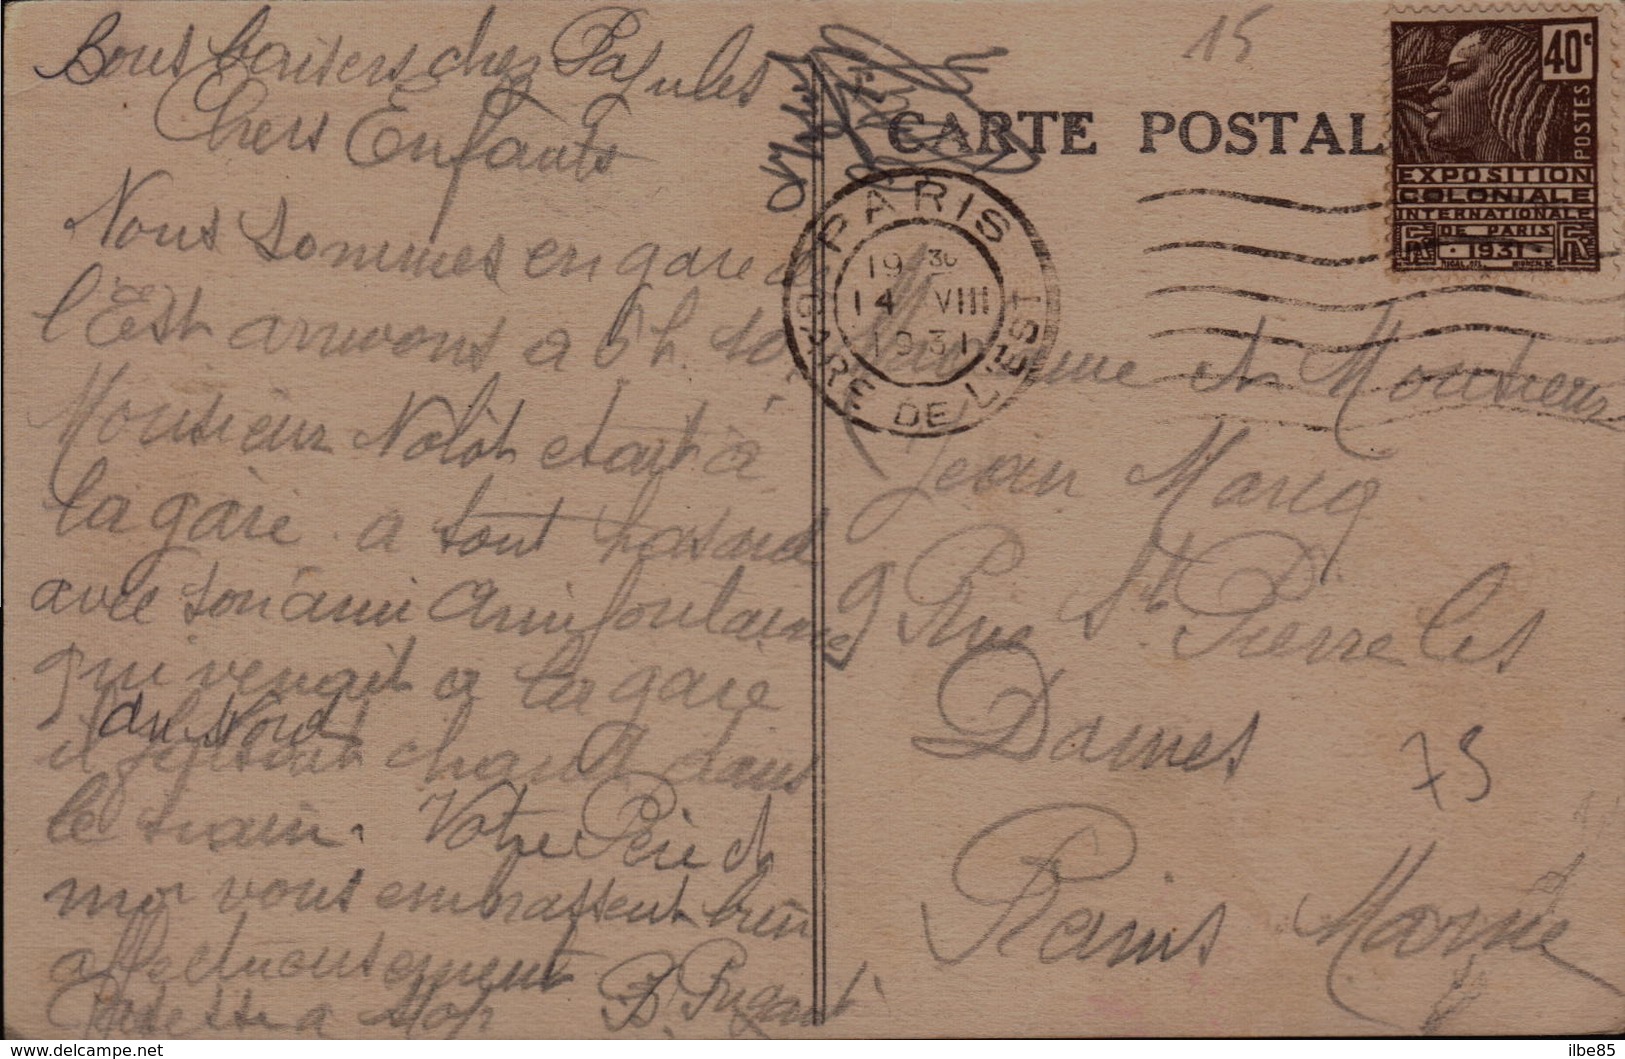 Bons baisers chez
Chers Enfants
Nous sommes en gare de
l'Est arrivons a 6 h. 10
Monsieur Nolot etait à
la gare a tout hasard
avec son ami
qui venait a la gare
du Nord
il faisait chaud dans
le train. Votre Père et
moi vous embrassent bien
affectueusement
B.
CARTE POSTAL
15
40c
POSTES
EXPOSITION
COLONIALE
INTERNATIONALE
DE PARIS
1931
PARIS
GARE DE L'EST
19 30
14 VIII
1931
Madame et Monsieur
Jean
9 Rue St Pierre les
Dames
75
Reims Marne
delcampe.net
ilbe85